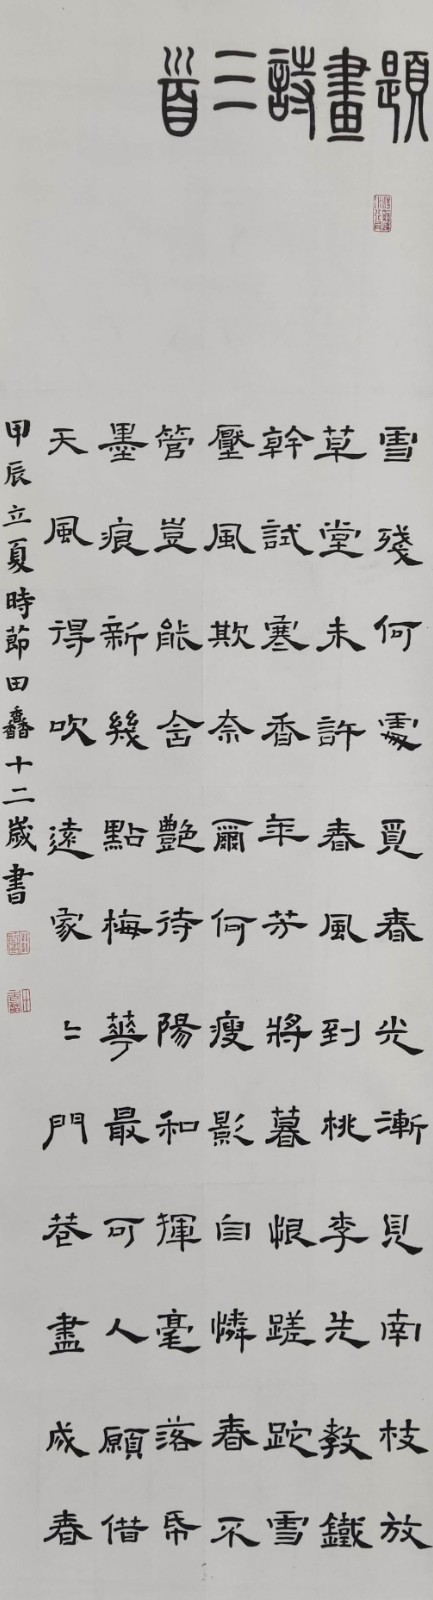 題畫詩三首
雪殘何處覓春光漸見南枝放
草堂未許春風到桃李先教鐵
幹試寒香年芳將暮恨蹉跎雪
壓風欺奈爾何瘦影自憐春不
管豈能舍艷待陽和揮毫落帋
墨痕新幾點梅華最可人願借
天風得吹遠家〻門巷盡成春
甲辰立夏時節田馫十二歲書